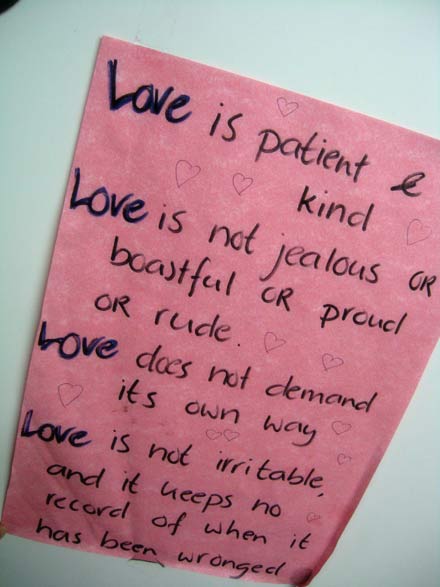 Love is patient &
kind
Love is not jealous OR
boastful OR proud
OR rude.
Love does not demand
its own way
Love is not irritable,
and it keeps no
record of when it
has been wronged